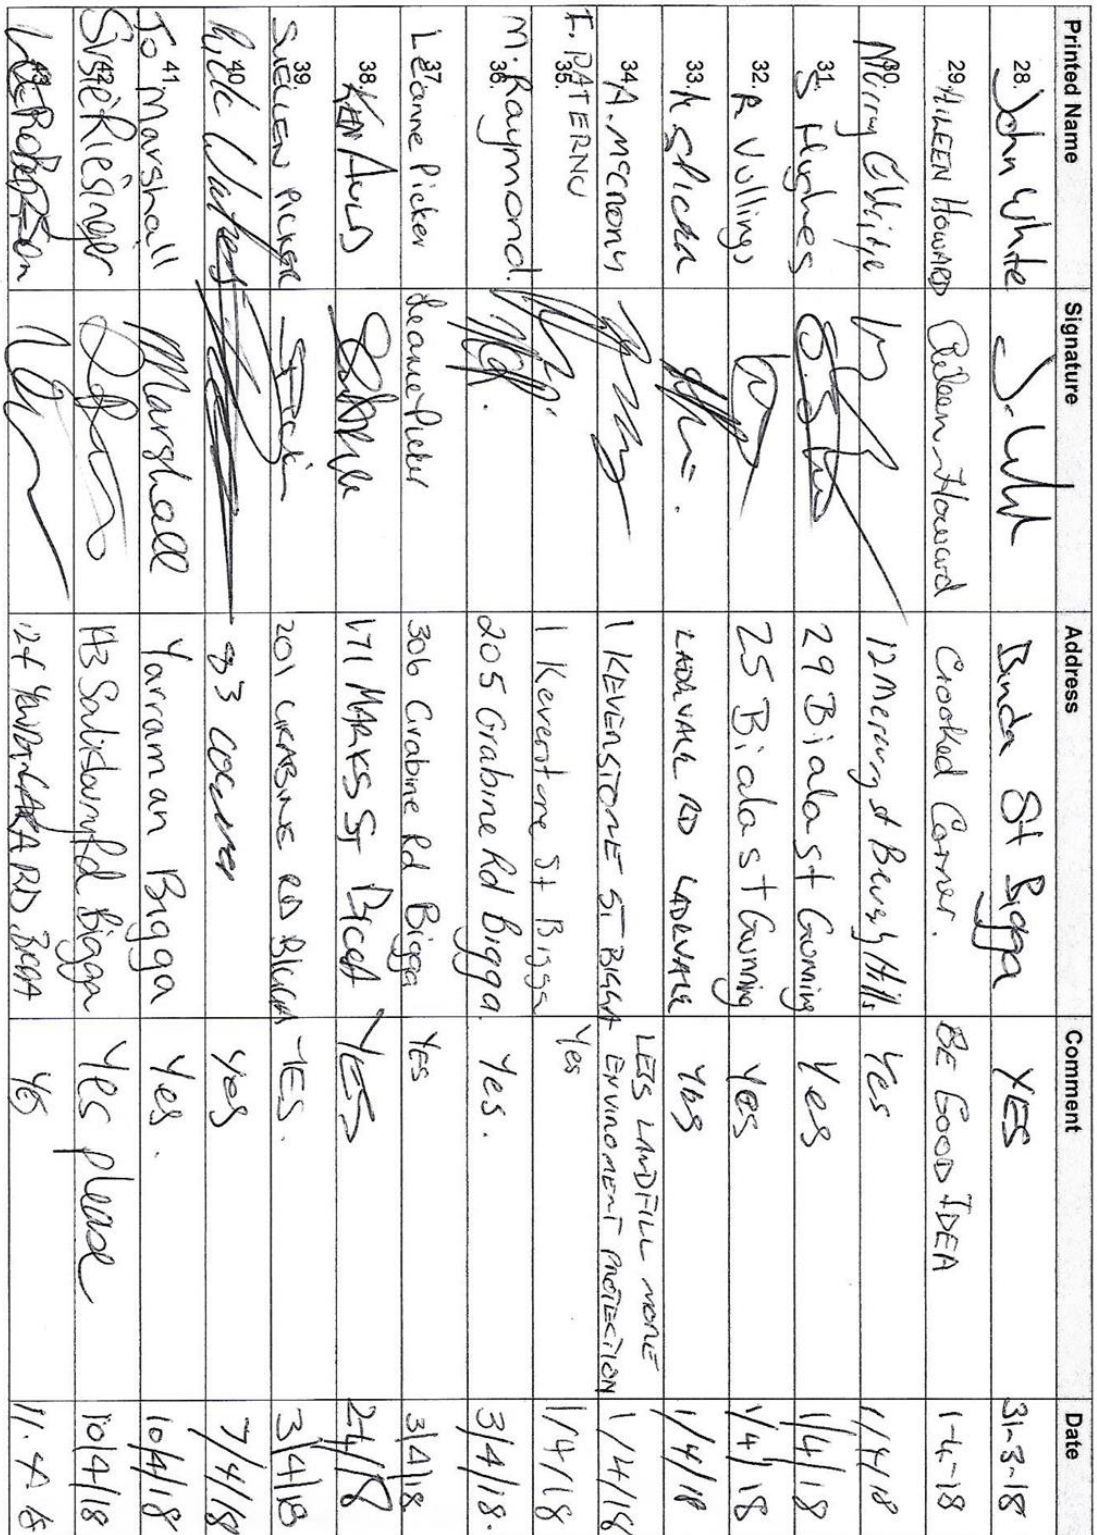 Printed Name Signature Address Comment Date
28. John White J. Whit Binda St Bigga YES 31-3-18
29. AILEEN HOWARD Aileen Howard Crooked Corner. BE GOOD IDEA 1-4-18
30. 12 Mercury st Beverly Hills Yes 1/4/18
31. S Hughes 29 Biala st Gunning Yes 1/4/18
32. R Vullings 25 Biala st Gunning Yes 1/4/18
33. LADEVALE RD LADEVALE Yes 1/4/18
34. 1 KEVENSTONE ST BIGGA LESS LANDFILL MORE
ENVIROMENT PROTECTION 1/4/18
35. F. PATERNO 1 Keverstone St Bigga Yes 1/4/18
36. M. Raymond. 205 Grabine Rd Bigga. Yes. 3/4/18.
37. Leanne Picker Leanne Picker 306 Grabine Rd Bigga YES 3/4/18.
38. KEN AULD 171 MARKS ST YES
39. PICKER 201 GRABINE RD YES. 3/4/18
40. 83 Yes 7/4/18
41. Jo Marshall JMarshall Yarraman Bigga Yes. 10/4/18
42. Susie Riesinger Bigga Yes please 10/4/18
43. RD BIGGA YES